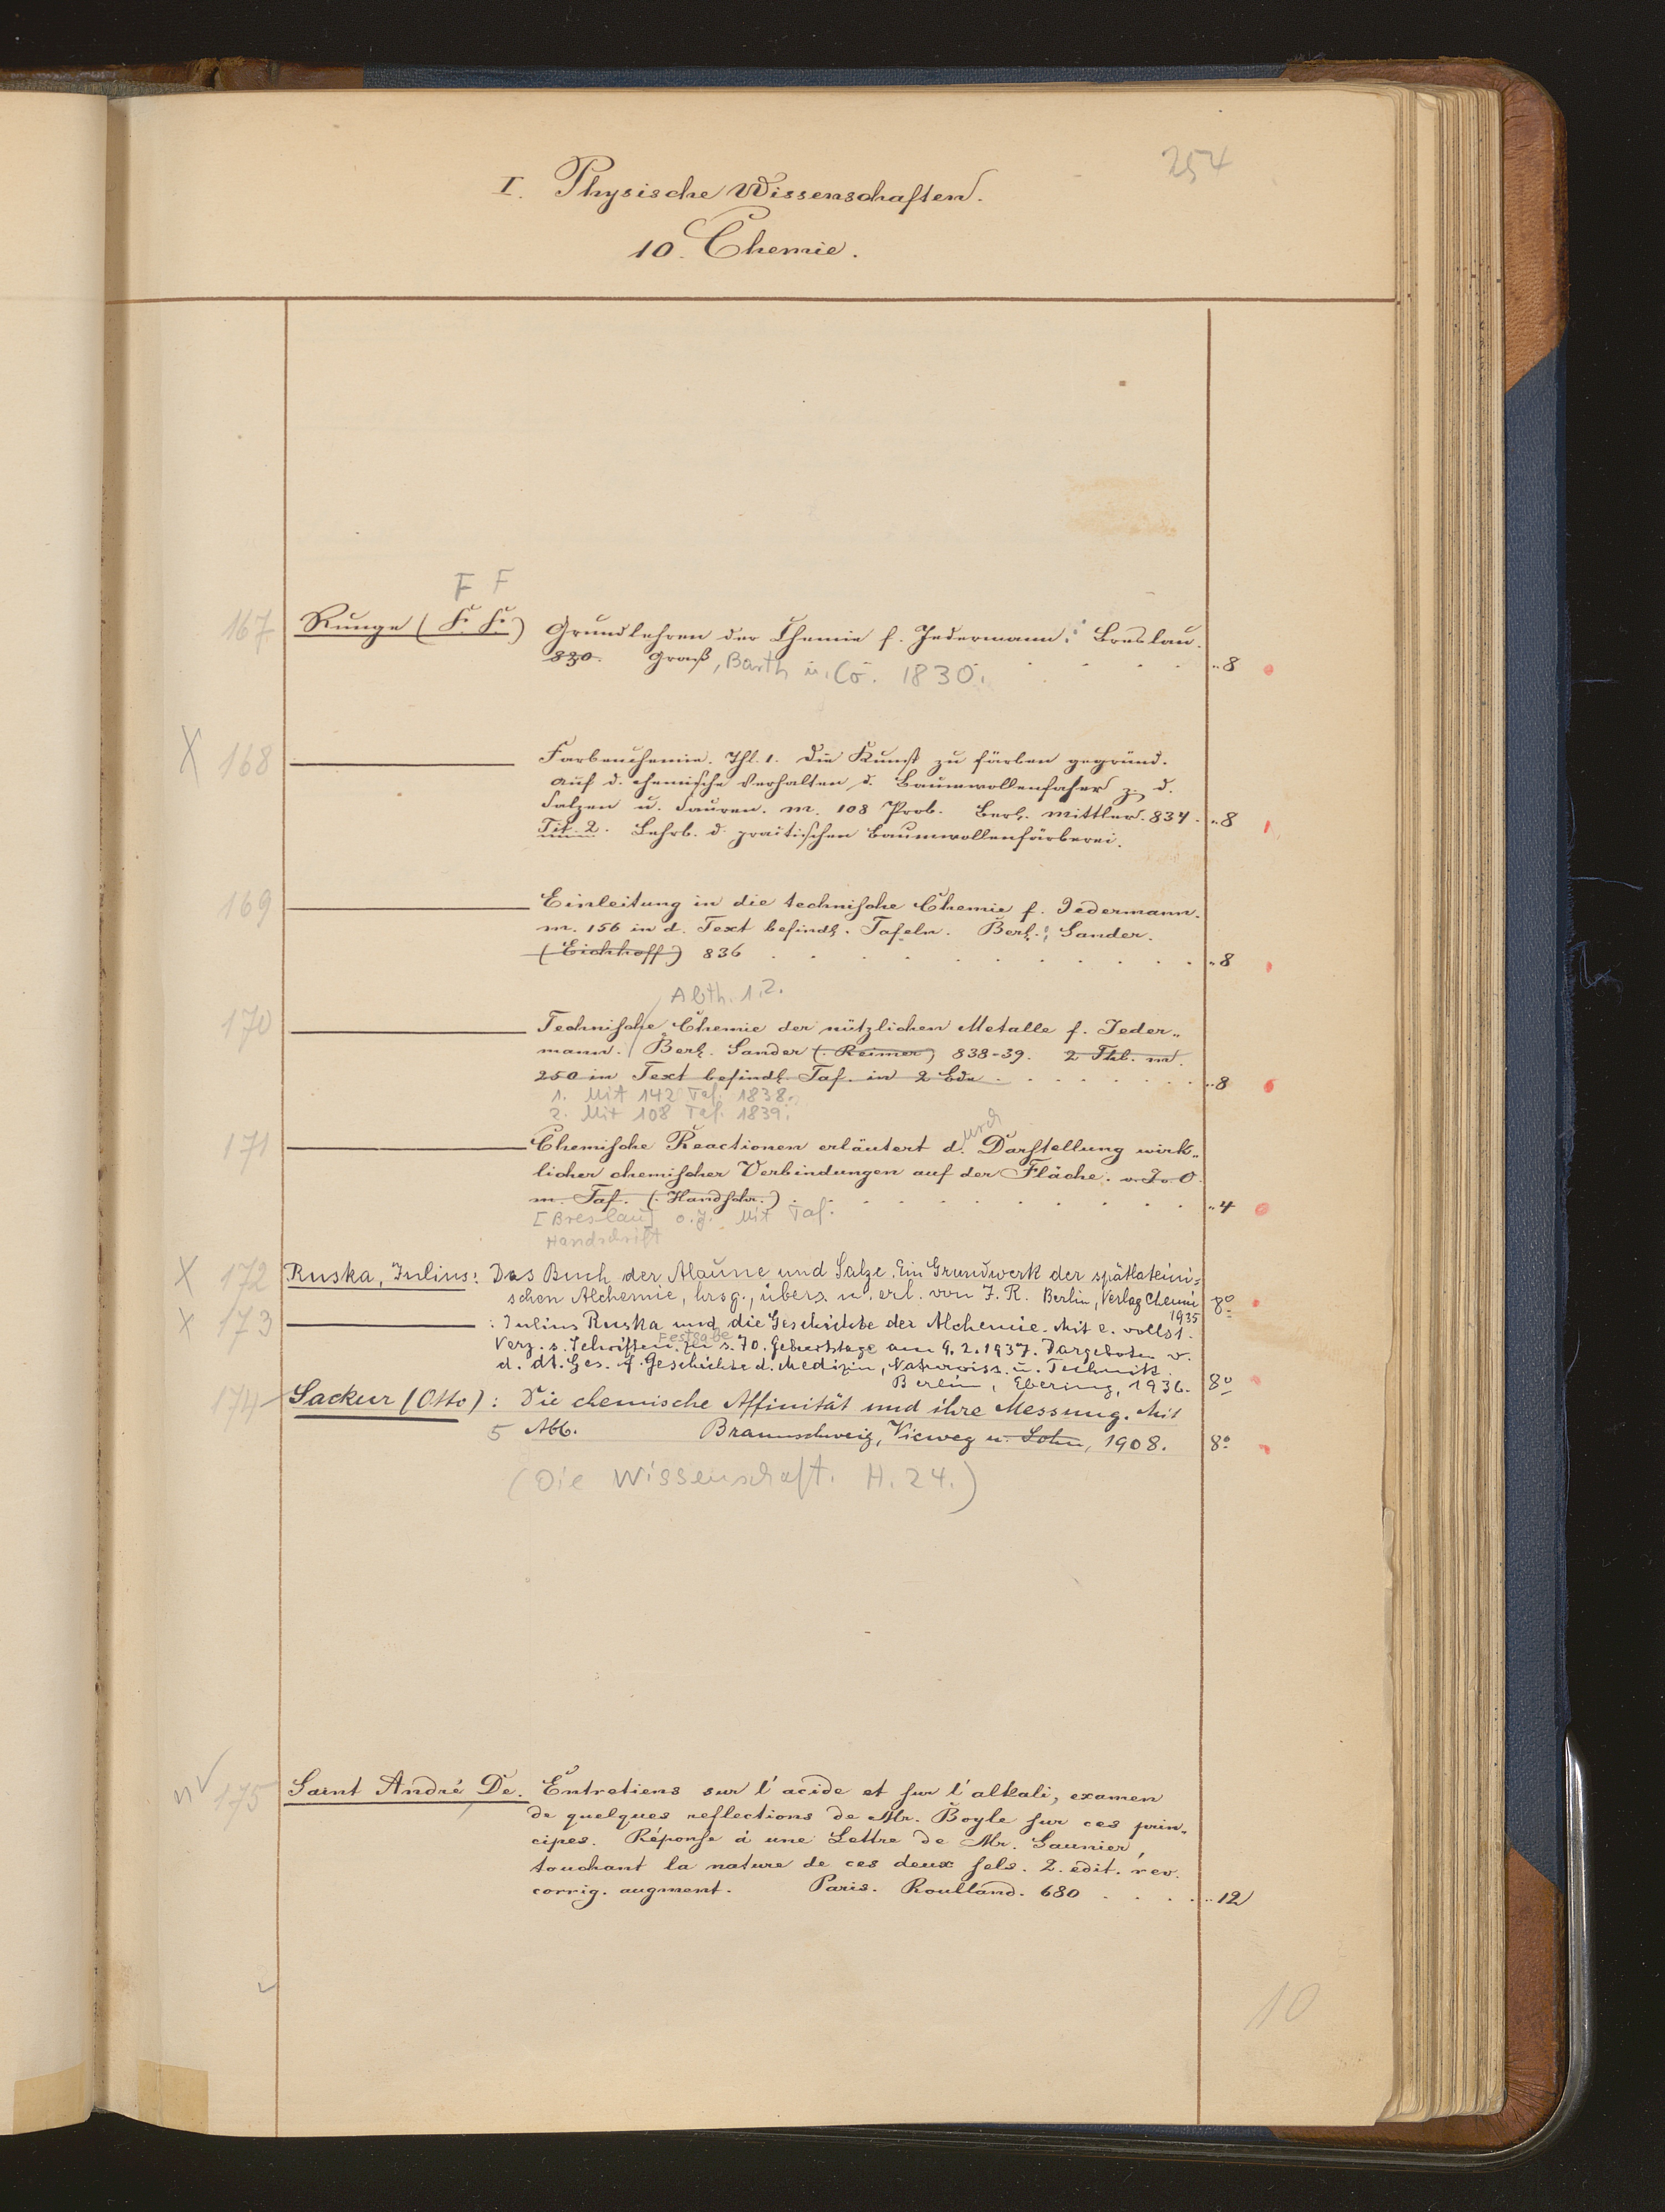 254
I. Physische Wissenschaften.
10. Chemie.
F F
167 Runge (F. F.) Grundlehren der Chemie f. Jedermann. Breslau.
830. Graß, Barth u. Co. 1830. . . . . „8
X 168 Farbenchemie. Thl. 1. Die Kunst zu färben gegründ.
auf d. chemische Verhalten d. Baumwollenfaser z. d.
Salzen u. Säuren. m. 108 Prob. Berl. Mittler. 834. „8
Tit. 2. Lehrb. d. praktischen Baumwollenfärberei.
169 Einleitung in die technische Chemie f. Jedermann.
m. 156 in d. Text befindl. Tafeln. Berl. Sander.
(Eichhoff) 836 . . . . . . . . . „8
Abth. 1.2.
170 Technische Chemie der nützlichen Metalle f. Jeder„
mann. Berl. Sander (Reimer) 838-39. 2 Thl. m.
250 in Text befindl. Taf. in 2 Bde. . . . . . . „8
1. Mit 142 Taf. 1838.
2. Mit 108 Taf. 1839.
urch
171 Chemische Reactionen erläutert d. Darstellung wirk„
licher chemischer Verbindungen auf der Fläche. o. J. o. O.
m. Taf. (Handschr.) . . . . . . . . „4
[Breslau] o.J. Mit Taf.
Handschrift
X 172 Ruska, Julius: Das Buch der Alaune und Salze. Ein Grundwerk der spätlateini=
schen Alchemie, hrsg., übers. u. erl. von J. R. Berlin, Verlag Chemie 8º
1935
X 173 : Julius Ruska und die Geschichte der Alchemie. Mit e. vollst.
Festgabe
Verz. s. Schriften. Zu s. 70. Geburtstage am 9.2.1937. Dargeboten v.
d. dt. Ges. f. Geschichte d. Medizin, Naturwiss. u. Technik.
Berlin, Ebering, 1936. 8º
174 Sackur (Otto): Die chemische Affinität und ihre Messung. Mit
5 Abb. Braunschweig, Vieweg u. Sohn, 1908. 8º
(Die Wissenschaft. H. 24.)
175 Saint André De. Entretiens sur l'acide et sur l'alkali, examen
de quelques reflections de Mr. Boyle sur ces prin„
cipes. Réponse à une Lettre de Mr. Saunier,
touchant la nature de ces deux sels. 2. edit. rev.
corrig. augment. Paris. Roulland. 680 . . . . „12
10